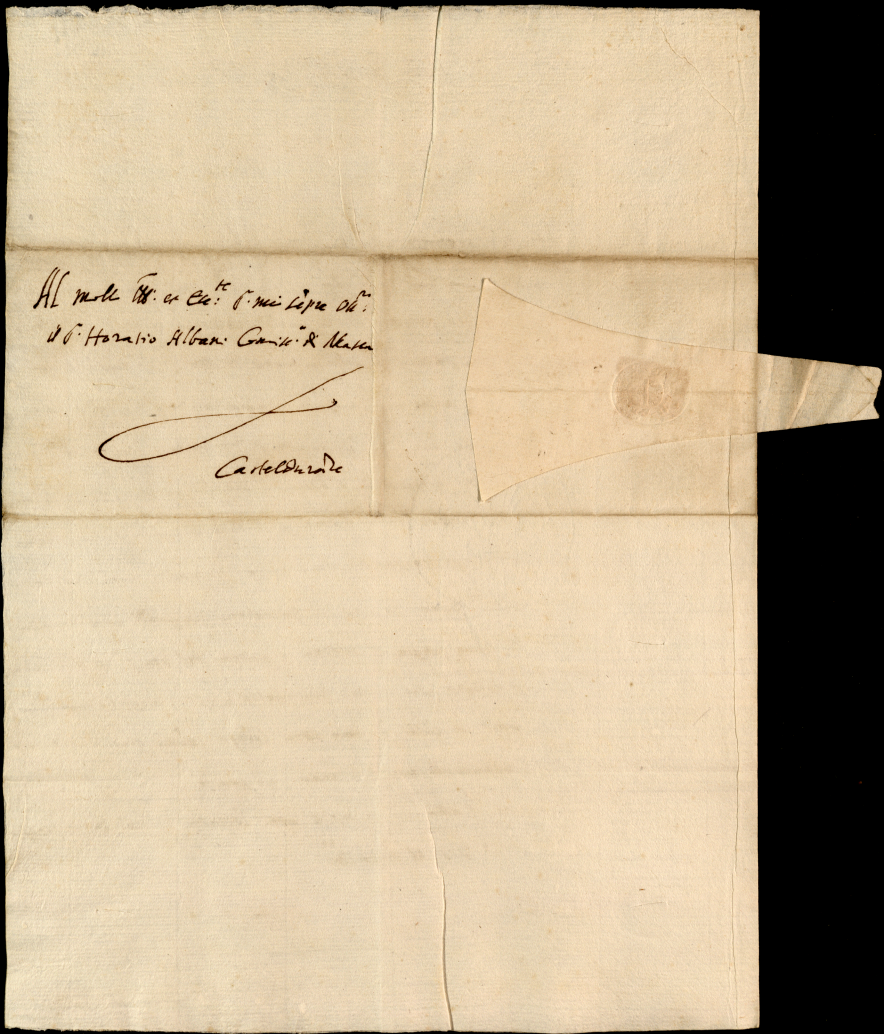 Al molt Ill: et Ecc:te S. mio sẽpre oss:mo
il S. Horatio Albani Comiss:o di Massa
Casteldurãte